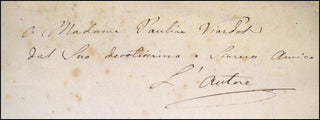 a Madame Pauline Viardot
dal Suo devotissimo e Sincero Amico
L'Autore